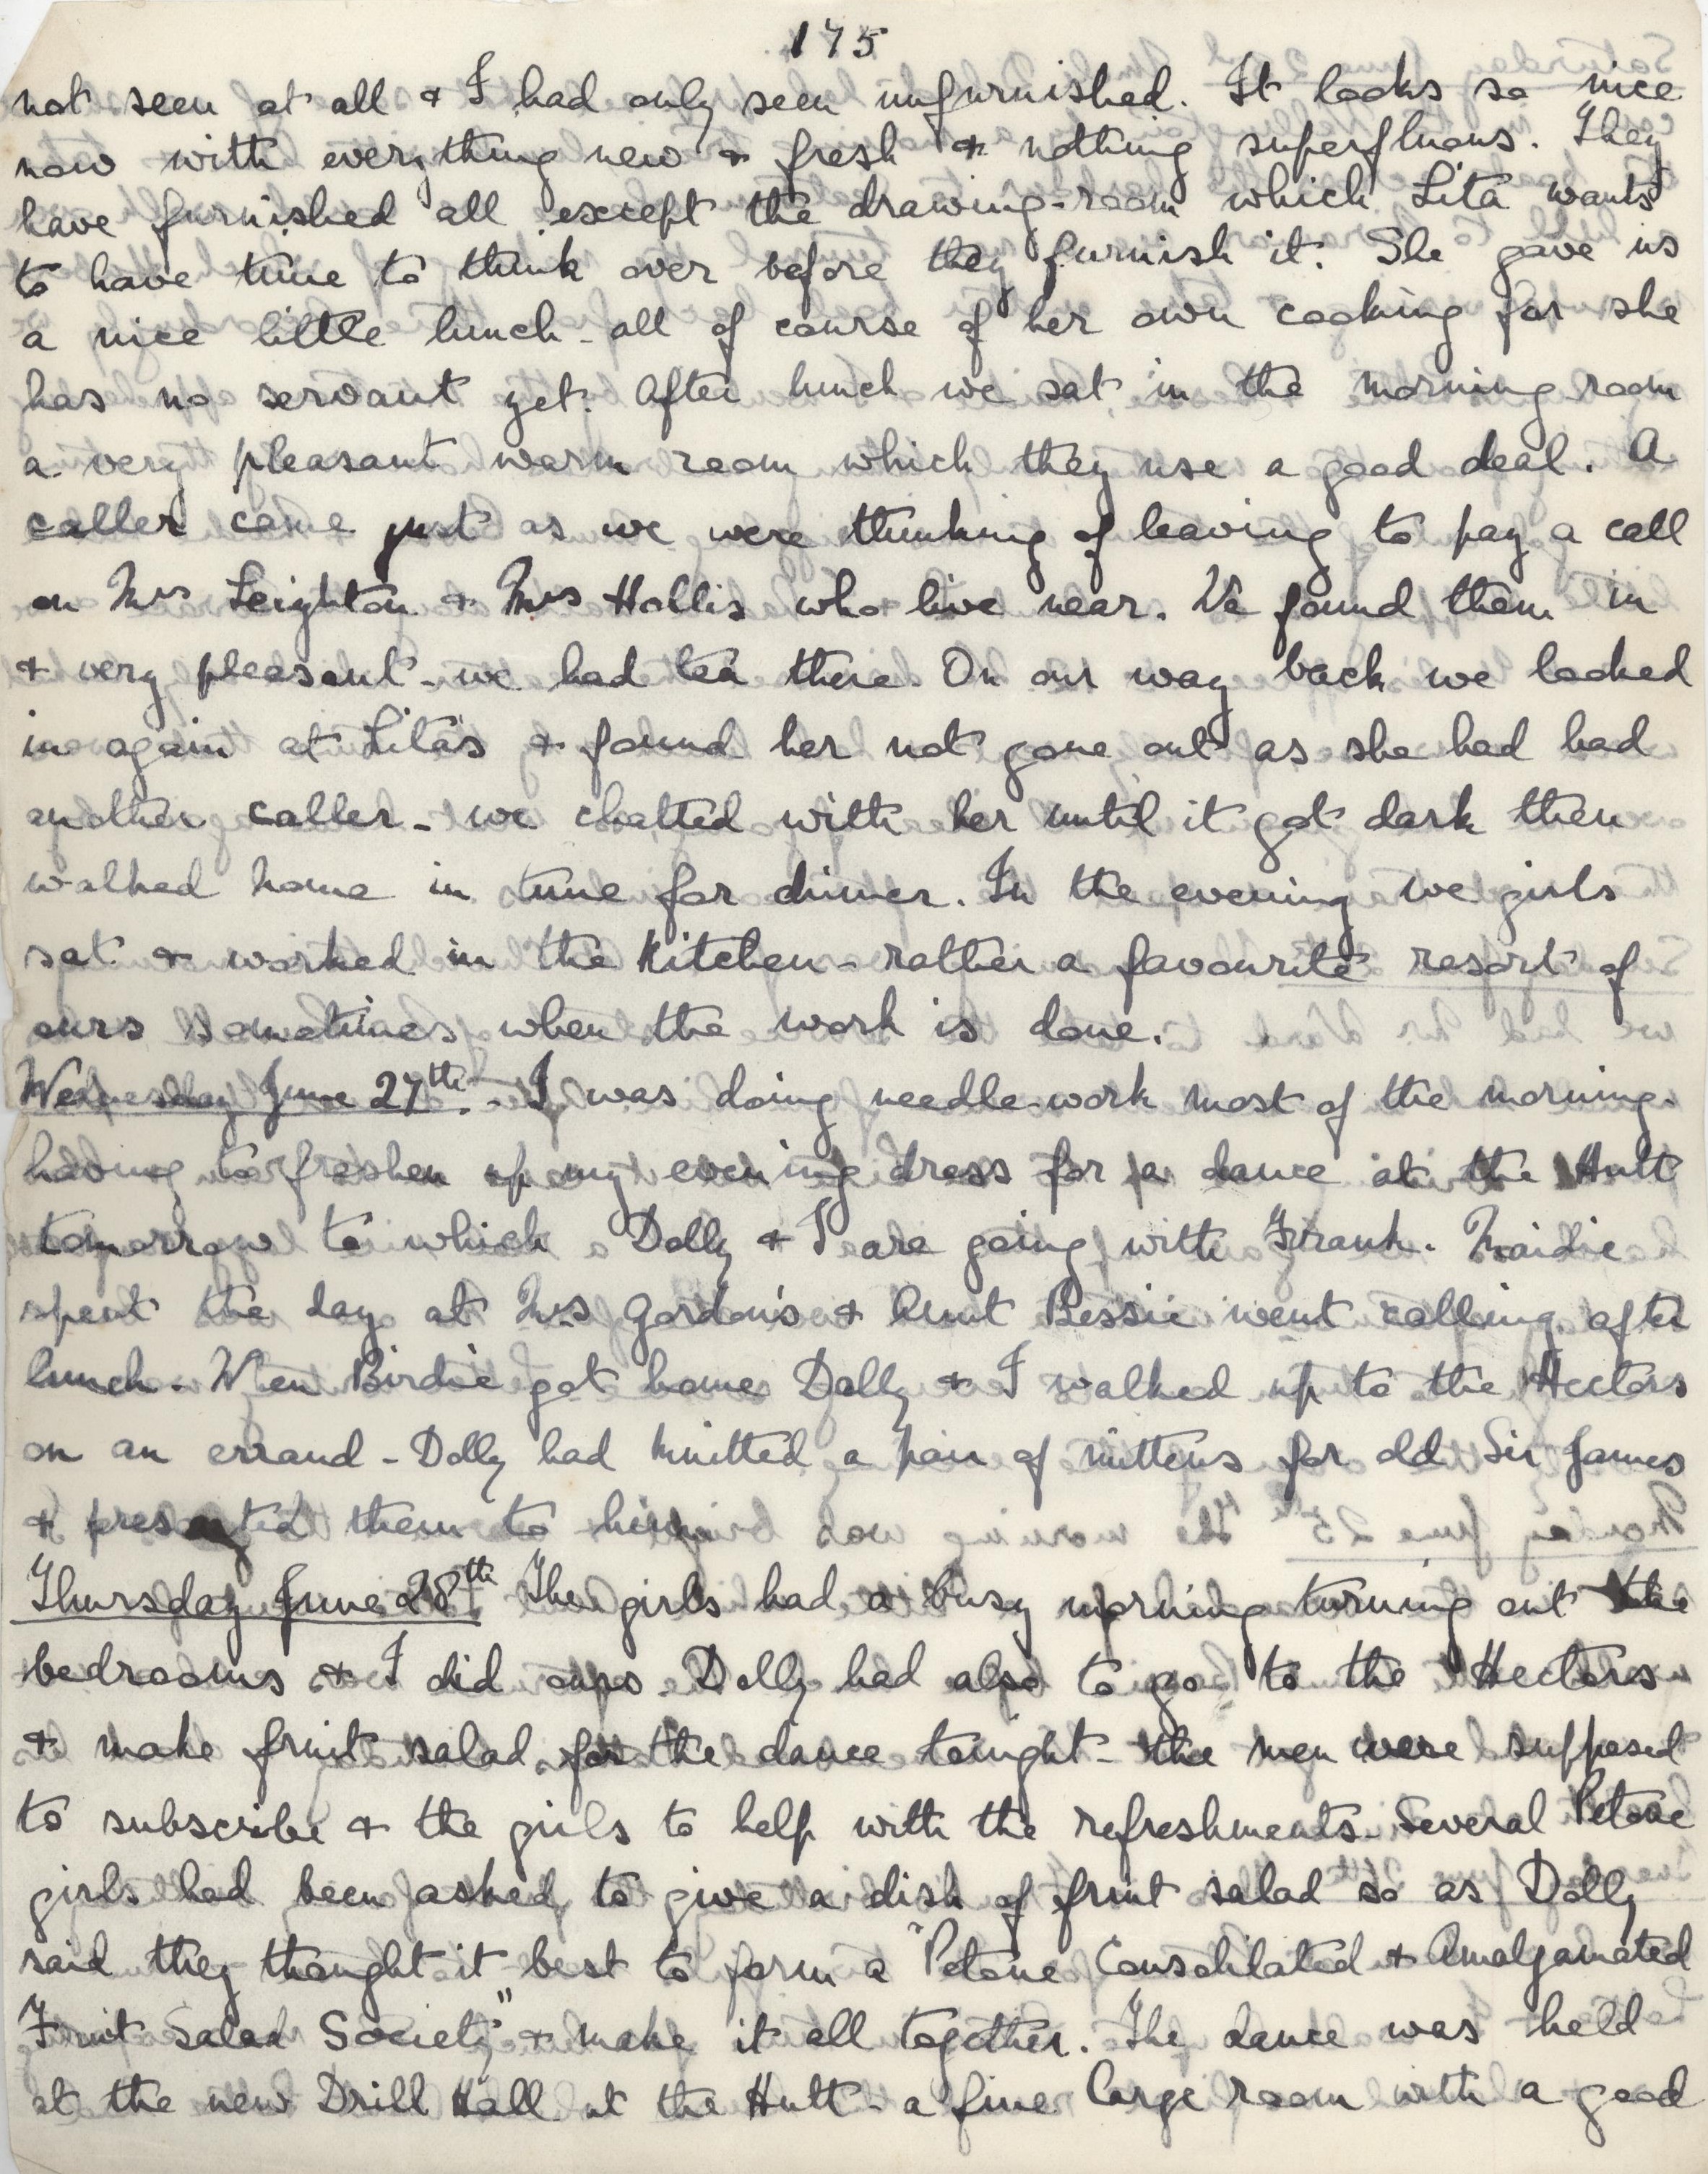 175
not seen at all & I had only seen unfurnished. It looks so nice
now with everything new & fresh & nothing superfluous. They
have furnished all except the drawing-room which Lita wants
to have time to think over before they furnish it. She gave us
a nice little lunch - all of course of her own cooking for she
has no servant yet. After lunch we sat in the morning room
a very pleasant warm room which they use a good deal. A
caller came just as we were thinking of leaving to pay a call
on Mrs Leighton & Mrs Hollis who live near. We found them in
& very pleasant - we had tea there. On our way back we looked
in again at Lita's & found her not gone out as she had had
another caller - we chatted with her until it got dark then
walked home in time for dinner. In the evening we girls
sat & worked in the kitchen - rather a favourite resort of
ours sometimes when the work is done.
Wednesday June 27th. - I was doing needle-work most of the morning -
having to freshen up my evening dress for a dance at the Hutt
tomorrow to which Dolly & I are going with Frank. Maidie
spent the day at Mrs Gordon's & Aunt Bessie went calling after
lunch. When Birdie got home Dolly & I walked up to the Hectors
on an errand - Dolly had knitted a pair of mittens for old Sir James
& presented them to him.
Thursday June 28th The girls had a busy morning turning out the
bedrooms & I did ours. Dolly had also to go to the Hectors
& make fruit salad for the dance tonight - the men were supposed
to subscribe & the girls to help with the refreshments. Several Petone
girls had been asked to give a dish of fruit salad so as Dolly
said they thought it best to form a "Petone Consolidated & Amalgamated
Fruit Salad Society" & make it all together. The dance was held
at the new Drill Hall at the Hutt - a fine large room with a good